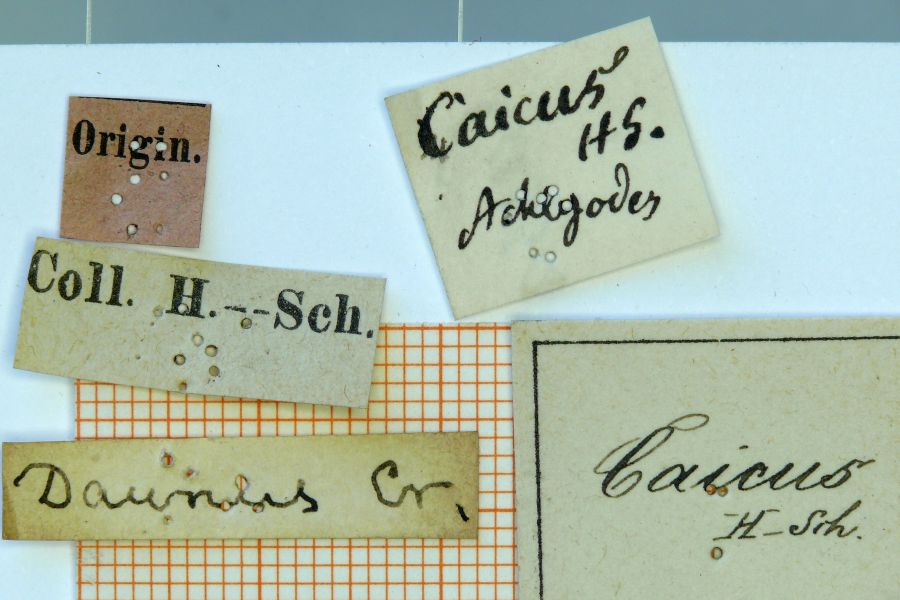 Origin.
Caicus
HS.
Coll. H.--Sch.
Caicus
H-Sch.
Daunus Cr.